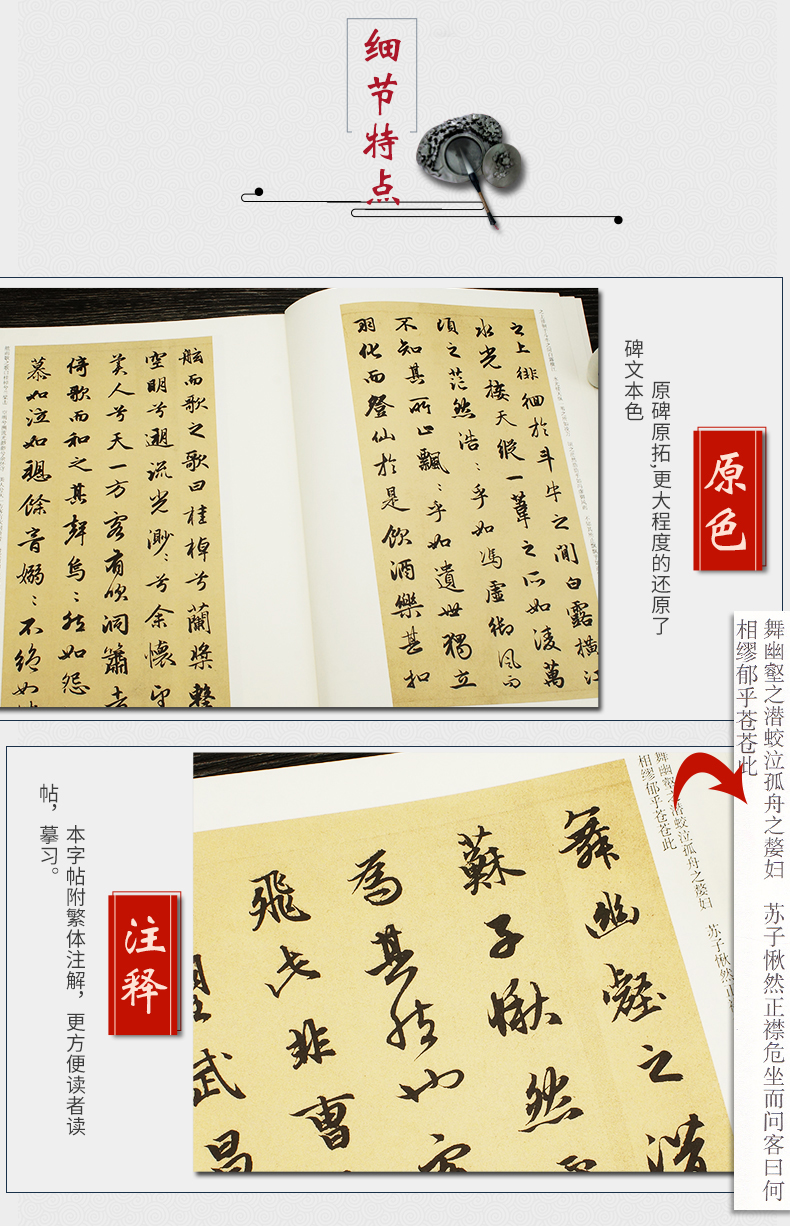 细节特点
原色
原碑原拓,更大程度的还原了
碑文本色
之上徘徊於斗牛之間白露橫江
水光接天縱一葦之所如淩萬
頃之茫然浩:乎如馮虛御风而
不知其所止飄:乎如遺世獨立
羽化而登仙於是飲酒樂甚扣
舷而歌之歌曰桂棹兮蘭槳擊
空明兮遡流光渺:兮余懷
美人兮天一方客有吹洞簫
倚歌而和之其聲烏:然如怨
慕如泣如餘音嫋:不絕如
舞幽壑之潜蛟泣孤舟之嫠妇 苏子愀然正襟危坐而问客曰何
相缪郁乎苍苍此
舞幽壑之潜蛟泣孤舟之嫠妇 苏子愀然正
相缪郁乎苍苍此
舞幽壑之潜
蘇子愀然
為其然也客
飛此非曹
武昌
注释
本字帖附繁体注解，更方便读者读
帖，摹习。